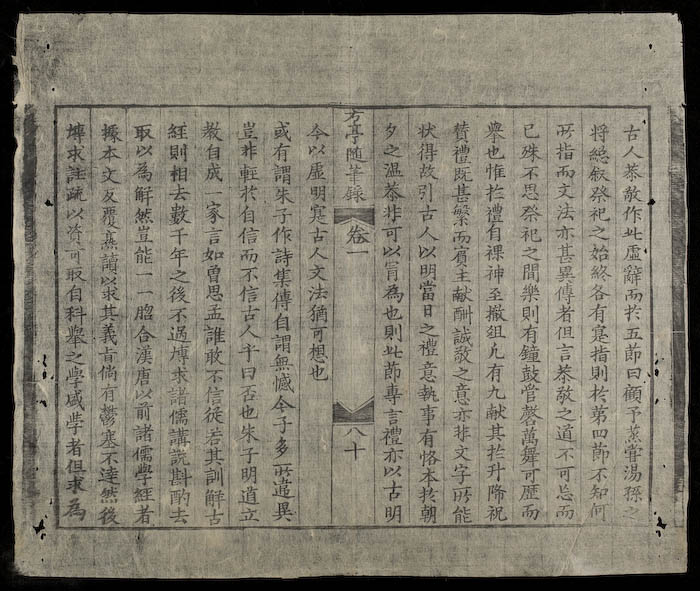 古人恭敬作此虛辭而於五節曰顧予烝嘗湯孫之
將總叙祭祀之始終各有寔指則於第四節不知何
所指而文法亦甚異傳者但言恭敬之道不可忘而
已殊不思祭祀之間樂則有鐘鼓管磬萬舞可歷而
舉也惟於禮自祼神至撤俎凢有九献其於升降祝
賛禮既甚繁而賓主献酬誠敬之意亦非文字所能
狀得故引古人以明當日之禮意執事有恪本於朝
夕之温恭非可以冐為也則此節專言禮亦以古明
今以虛明寔古人文法猶可想也
方亭隨筆錄
卷一
八十
或有謂朱子作詩集傳自謂無憾今子多所違異
豈非輕於自信而不信古人乎曰否也朱子明道立
教自成一家言如曾思孟誰敢不信從若其訓解古
經則相去數千年之後不過博求諸儒講説斟酌去
取以為解然豈能一一脗合漢唐以前諸儒學經者
據本文反覆熟讀以求其義㫖倘有鬱塞不達然後
博求註疏以資可取自科舉之學盛學者但求為